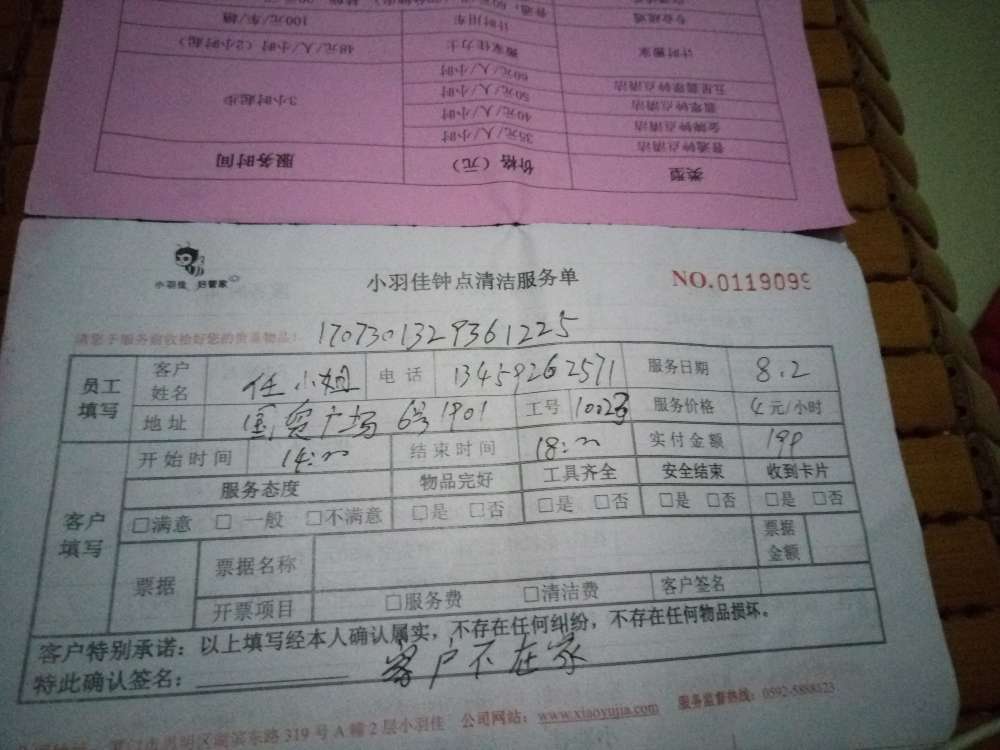 类型 价格（元） 服务时间
普通钟点清洁 35元/人/小时 3小时起步
金牌钟点清洁 40元/人/小时
翡翠钟点清洁 50元/人/小时
五星翡翠钟点清洁 60元/人/小时
计时搬家 搬家佳力士 48元/人/小时（2小时起）
计时用车 100元/车/辆
小羽佳 好管家
小羽佳钟点清洁服务单
NO.0119099
请您于服务前收拾好您的贵重物品：
1707301329361225
员工填写 客户姓名 任小姐 电话 13459262571 服务日期 8.2
地址 国贸广场6号1901 工号 服务价格 元/小时
客户填写 开始时间 14:00 结束时间 18:00 实付金额 199
服务态度 物品完好 工具齐全 安全结束 收到卡片
□满意 □一般 □不满意 □是 □否 □是 □否 □是 □否 □是 □否
票据 票据名称 票据金额
开票项目 □服务费 □清洁费 客户签名
客户特别承诺：以上填写经本人确认属实，不存在任何纠纷，不存在任何物品损坏。
特此确认签名： 客户不在家
厦门市思明区湖滨东路319号A幢2层小羽佳 公司网站：www.xiaoyujia.com 服务监督热线：0592-5888123